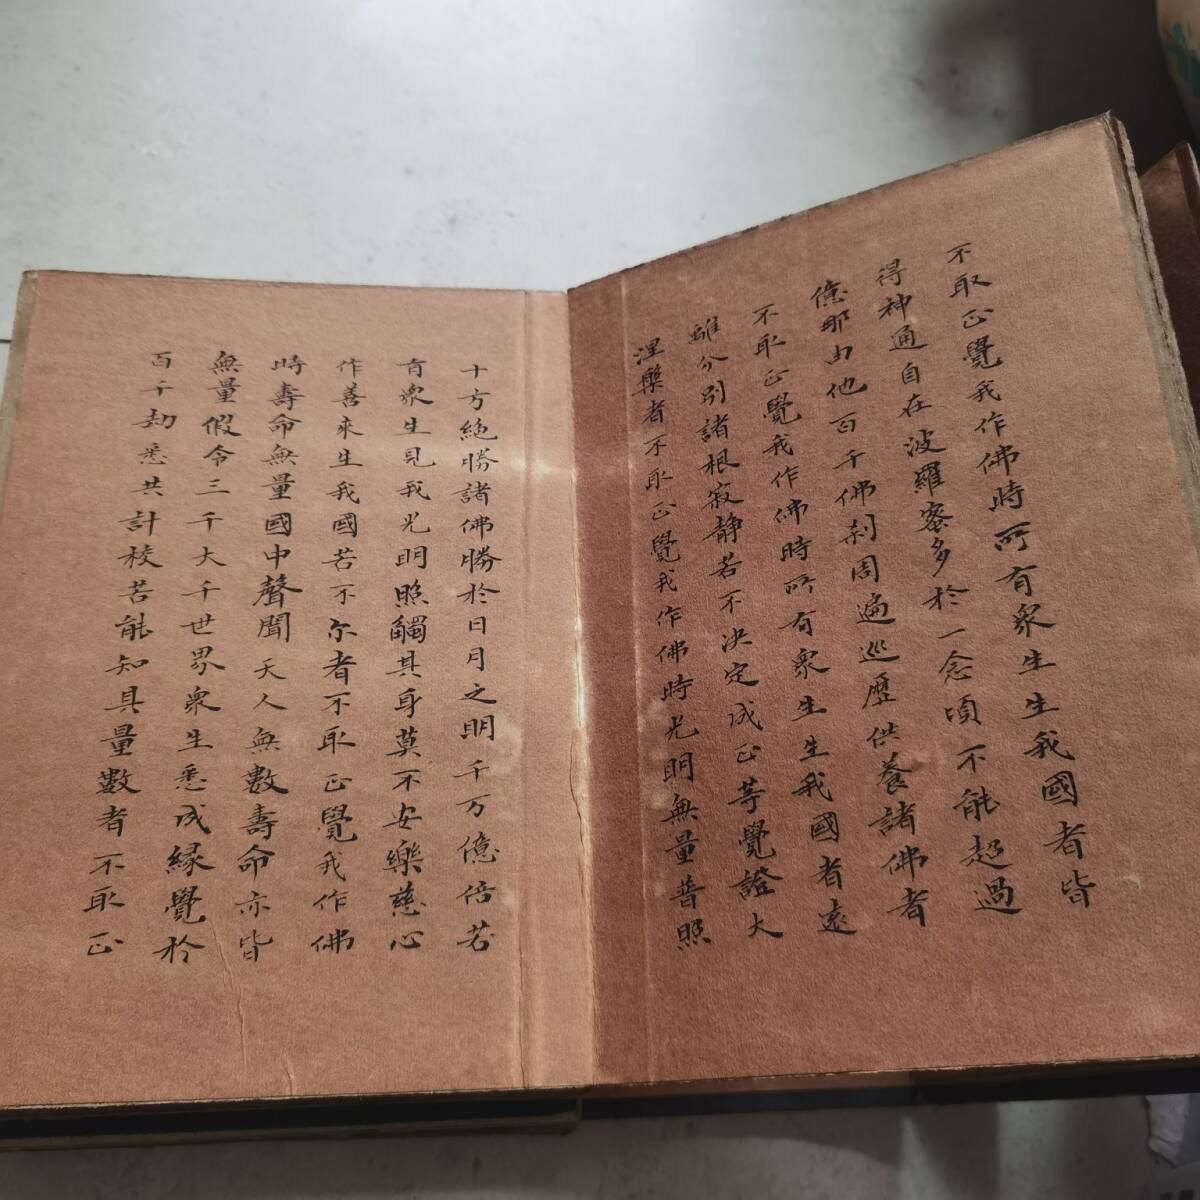 不取正覺我作佛時所有眾生生我國者皆
得神通自在波羅蜜多於一念頃不能超過
億那由他百千佛剎周遍巡歷供養諸佛者
不取正覺我作佛時所有眾生生我國者遠
離分別諸根寂靜若不決定成正等覺證大
涅槃者不取正覺我作佛時光明無量普照
十方絕勝諸佛勝於日月之明千万億倍若
有眾生見我光明照觸其身莫不安樂慈心
作善來生我國若不尒者不取正覺我作佛
時壽命無量國中聲聞天人無數壽命亦皆
無量假令三千大千世界眾生悉成緣覺於
百千劫悉共計校若能知其量數者不取正